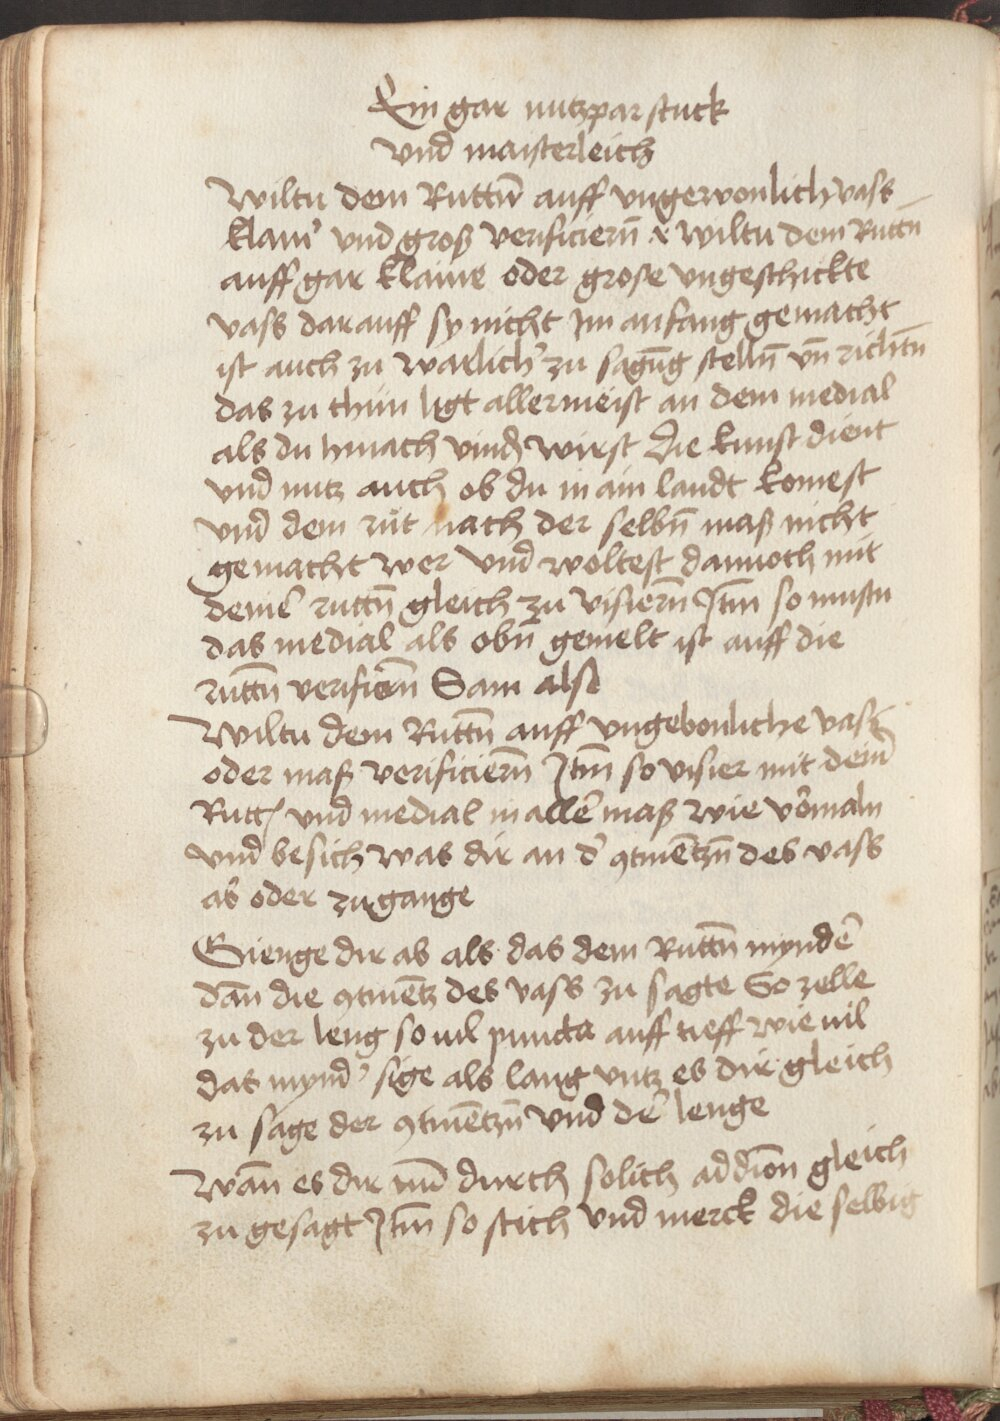 Ein gar nutzpar stuck
vnd maisterleich
Wiltu dem Ruttñ auff vngewonlich vass
klain' vnd groß verificierñ x wiltu dem Ruttñ
auff gar klaine oder grose vngeschickte
vass darauff sy nicht Im anfang gemacht
ist auch zu warlich' zu sagũg stellñ vñ richtñ
das zu thun ligt allermeist an dem medial
als du hnach vindst wirst Die kunst dient
vnd nutz auch ob du in ain landt komest
vnd dem rut nach der selbñ maß nicht
gemacht wer vnd woltest dannoch mit
deine' ruttñ gleich zu visierñ Itm̃ so mustu
das medial als obñ gemelt ist auff die
ruttñ verificirñ Sam also
Wiltu dem Ruttñ auff vngebonliche vass
oder maß verificierñ Itm̃ so visier mit dein'
Rutt vnd medial in alle' maß wie vormaln
vnd besich was dir an d' ꝯtinẽtzñ des vass
ab oder zu gange
Gienge dir ab als das dem Ruttñ mynde'
dañ die ꝯtinẽtz des vass zu sagte So zelle
zu der leng so vil puncta auff tieff wie vil
das mynd' sige als lang vntz es dir gleich
zu sage der ꝯtinẽtzñ vnd de' lenge
Wañ es dir nũ durch solich addiõn gleich
zu gesagt Itm̃ so stich vnd merck die selbig